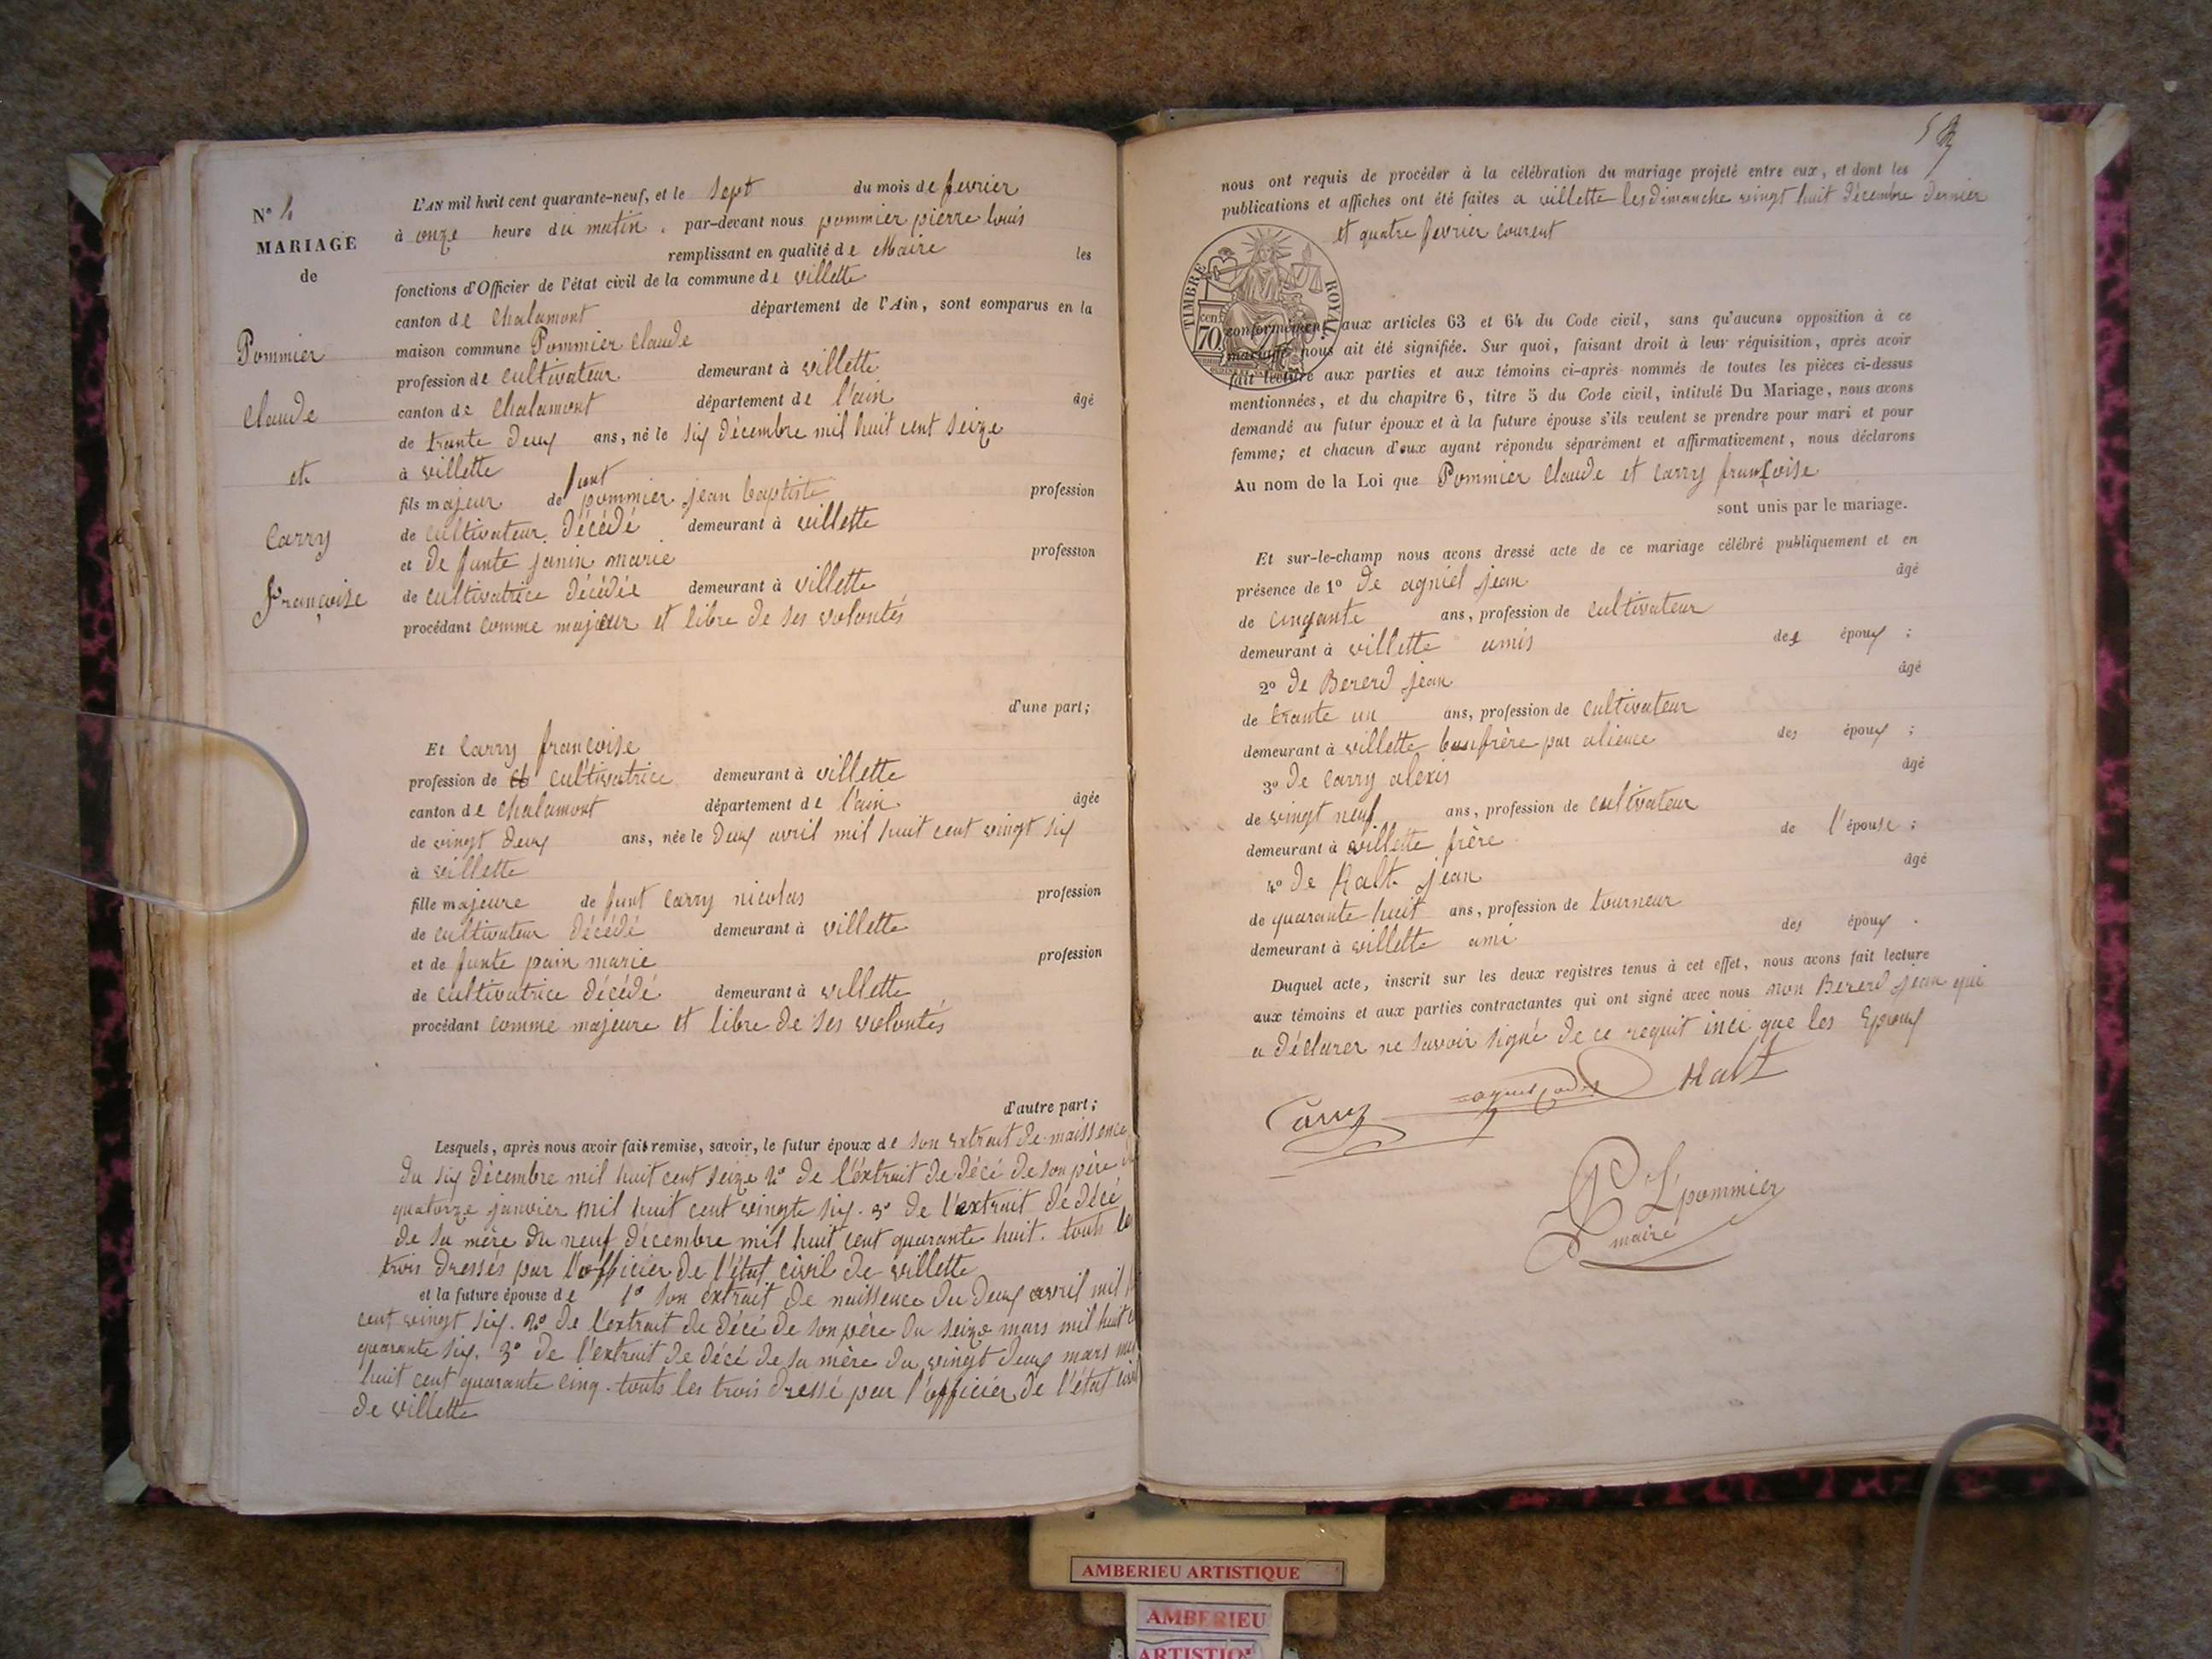 N° 4
MARIAGE
de
Pommier
Claude
et
Carry
Françoise
L'AN mil huit cent quarante-neuf, et le sept du mois de fevrier
à onze heure du matin, par-devant nous pommier pierre louis
remplissant en qualité de Maire les
fonctions d'Officier de l'état civil de la commune de villette
canton de Chalamont département de l'Ain, sont comparus en la
maison commune Pommier Claude
profession de cultivateur demeurant à villette
canton de Chalamont département de l'ain âgé
de trante deux ans, né le six décembre mil huit cent seize
à villette
fils majeur de funt pommier jean baptiste profession
de cultivateur décédé demeurant à villette
et de funte janin marie profession
de cultivatrice décédée demeurant à villette
procédant comme majeur et libre de ses volontés
d'une part;
Et Carry françoise
profession de cultivatrice demeurant à villette
canton de Chalamont département de l'ain âgée
de vingt deux ans, née le deux avril mil huit cent vingt six
à villette
fille majeure de funt Carry nicolas profession
de cultivateur décédé demeurant à villette
et de funte pain marie profession
de cultivatrice décédé demeurant à villette
procédant comme majeure et libre de ses volontés
d'autre part;
Lesquels, après nous avoir fait remise, savoir, le futur époux de son extrait de naissence
du six décembre mil huit cent seize 2° de l'éxtrait de décé de son père
quatorze janvier mil huit cent vingte six. 3° de l'extrait de décé
de sa mère du neuf décembre mil huit cent quarante huit. touts les
trois dressés par l'officier de l'état civil de villette
et la future épouse de 1° son extrait de naissence du deux avril mil
cent vingt six. 2° de l'extrait de décé de son père du seize mars mil huit
quarante six. 3° de l'extrait de décé de sa mère du vingt deux mars mil
huit cent quarante cinq. touts les trois dressé par l'officier de l'état civil
de villette
nous ont requis de procéder à la célébration du mariage projeté entre eux, et dont les
publications et affiches ont été faites a villette les dimanche vingt huit décembre dernier
et quatre fevrier courent
TIMBRE ROYAL
cent
70
conformément aux articles 63 et 64 du Code civil, sans qu'aucune opposition à ce
mariage nous ait été signifiée. Sur quoi, faisant droit à leur réquisition, après avoir
fait lecture aux parties et aux témoins ci-après nommés de toutes les pièces ci-dessus
mentionnées, et du chapitre 6, titre 5 du Code civil, intitulé Du Mariage, nous avons
demandé au futur époux et à la future épouse s'ils veulent se prendre pour mari et pour
femme; et chacun d'eux ayant répondu séparément et affirmativement, nous déclarons
Au nom de la Loi que Pommier Claude et Carry françoise
sont unis par le mariage.
Et sur-le-champ nous avons dressé acte de ce mariage célébré publiquement et en
présence de 1° de agniel jean âgé
de cinqante ans, profession de cultivateur
demeurant à villette amis des époux ;
2° de Bererd jean âgé
de trante un ans, profession de cultivateur
demeurant à villette baufrère par alience des époux ;
3° de Carry alexis âgé
de vingt neuf ans, profession de cultivateur
demeurant à villette frère de l'épouse ;
4° de Halt jean âgé
de quarante-huit ans, profession de tourneur
demeurant à villette ami des époux .
Duquel acte, inscrit sur les deux registres tenus à cet effet, nous avons fait lecture
aux témoins et aux parties contractantes qui ont signé avec nous non Bererd jean qui
a déclarer ne savoir signé de ce requit inci que les Epoux
Carry Halt
P L pommier
maire
AMBERIEU ARTISTIQUE
AMBERIEU
ARTISTIQ